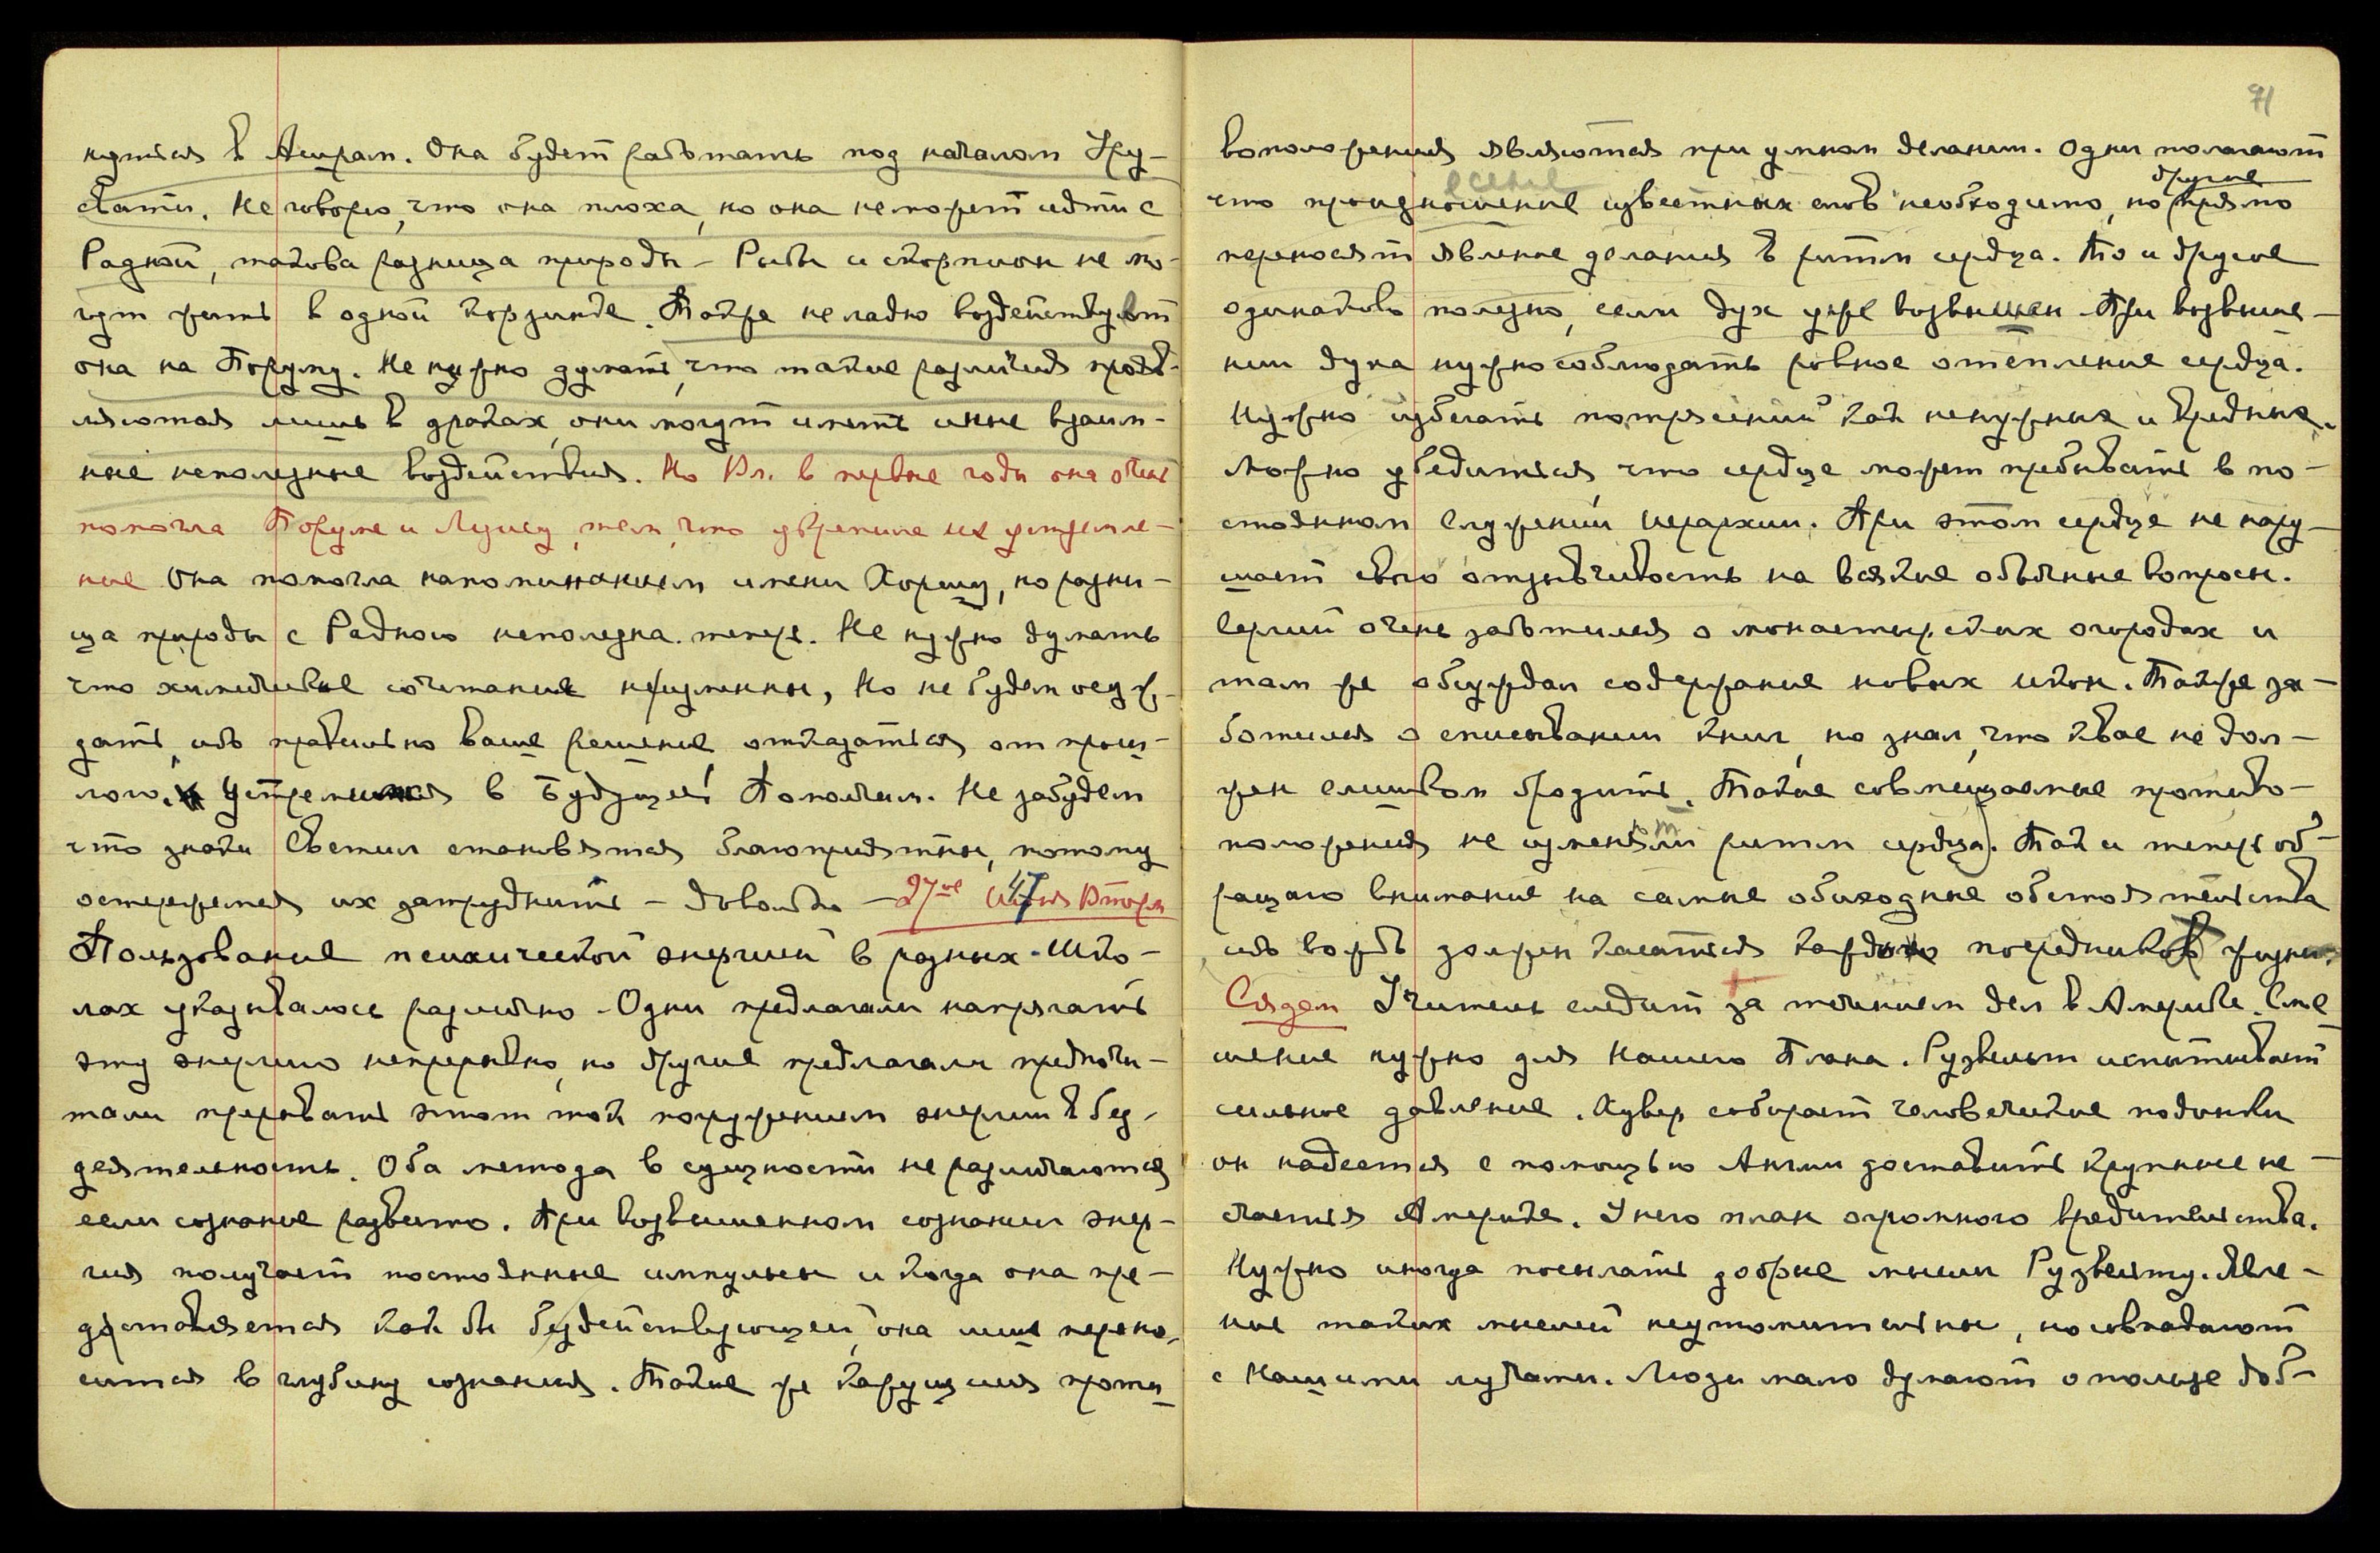 нуться в Ашрам. Она будет работать под началом Уру-
свати. Не говорю, что она плоха, но она не может идти с
Радной, такова разница природы – Рыбы и скорпион не мо-
гут жить в одной корзинке. Также не ладно воздействует
она на Поруму. Не нужно думать, что такие различия прояв-
ляются лишь в драках, они могут иметь иные взаим-
ные неполезные воздействия. Но Вл. в первые годы она очень
помогла Поруме и Люмоу, тем, что удержала их устремле-
ние Она помогла напоминанием имени Хорша, но разни-
ца природы с Радною неполезна теперь. Не нужно думать
что химические сочетания неизменны, Но не будем осуж-
дать, ибо правильно ваше решение отказаться от прош-
лого. Устремимся в Будущее! Поможем. Не забудем
что знаки Светил становятся благоприятны, потому
остережемся их затруднить – довольно – 27ое Июня Вторн
Пользование психической энергией в разных Шко-
лах указывалось различно. Одни предлагали напрягать
эту энергию непрерывно, но другие предлагали предпочи-
тали прерывать этот ток погружением энергии в без-
деятельность. Оба метода в сущности не различаются
если сознание развито. При возвышенном сознании энер-
гия получает постоянные импульсы и когда она пре-
доставляется как бы бездействующей, она лишь перено-
сится в глубину сознания. Такие же кажущиеся проти
71
воположения являются при умном делании. Одни полагают
другие
сение
что произношение известных слов необходимо, но прямо
переносят явление делания в ритм сердца. То и другое
одинаково полезно, если дух уже возвышен. При возвыше-
нии духа нужно соблюдать ровное отепление сердца.
Нужно избегать потрясений как ненужных и вредных.
Можно убедиться что сердце может пребывать в по-
стоянном Служении Иерархии. При этом сердце не нару-
шает свою отзывчивость на всякие обычные вопросы.
Сергий очень заботился о монастырских огородах и
там же обсуждал содержание новых икон. Также за-
ботился о списывании книг, но знал, что квас не дол-
жен слишком бродить. Такие совмещаемые противо-
положения не изменяют ритм сердца. Так и теперь об-
ращаю внимание на самые обиходные обстоятельства
ибо вождь должен касаться каждого посредников жизни.
Сядем Учитель следит за течением дел в Америке. Сме
шение нужно для Нашего Плана. Рузвельт испытывает
сильное давление. Хувер собирает человеческие подонки
он надеется с помощью Англии доставить крупные не-
счастья Америке. У него план огромного вредительства.
Нужно иногда посылать добрые мысли Рузвельту. Явле-
ние таких мыслей неутомительны, но совпадают
с Нашими лучами. Люди мало думают о пользе доб-